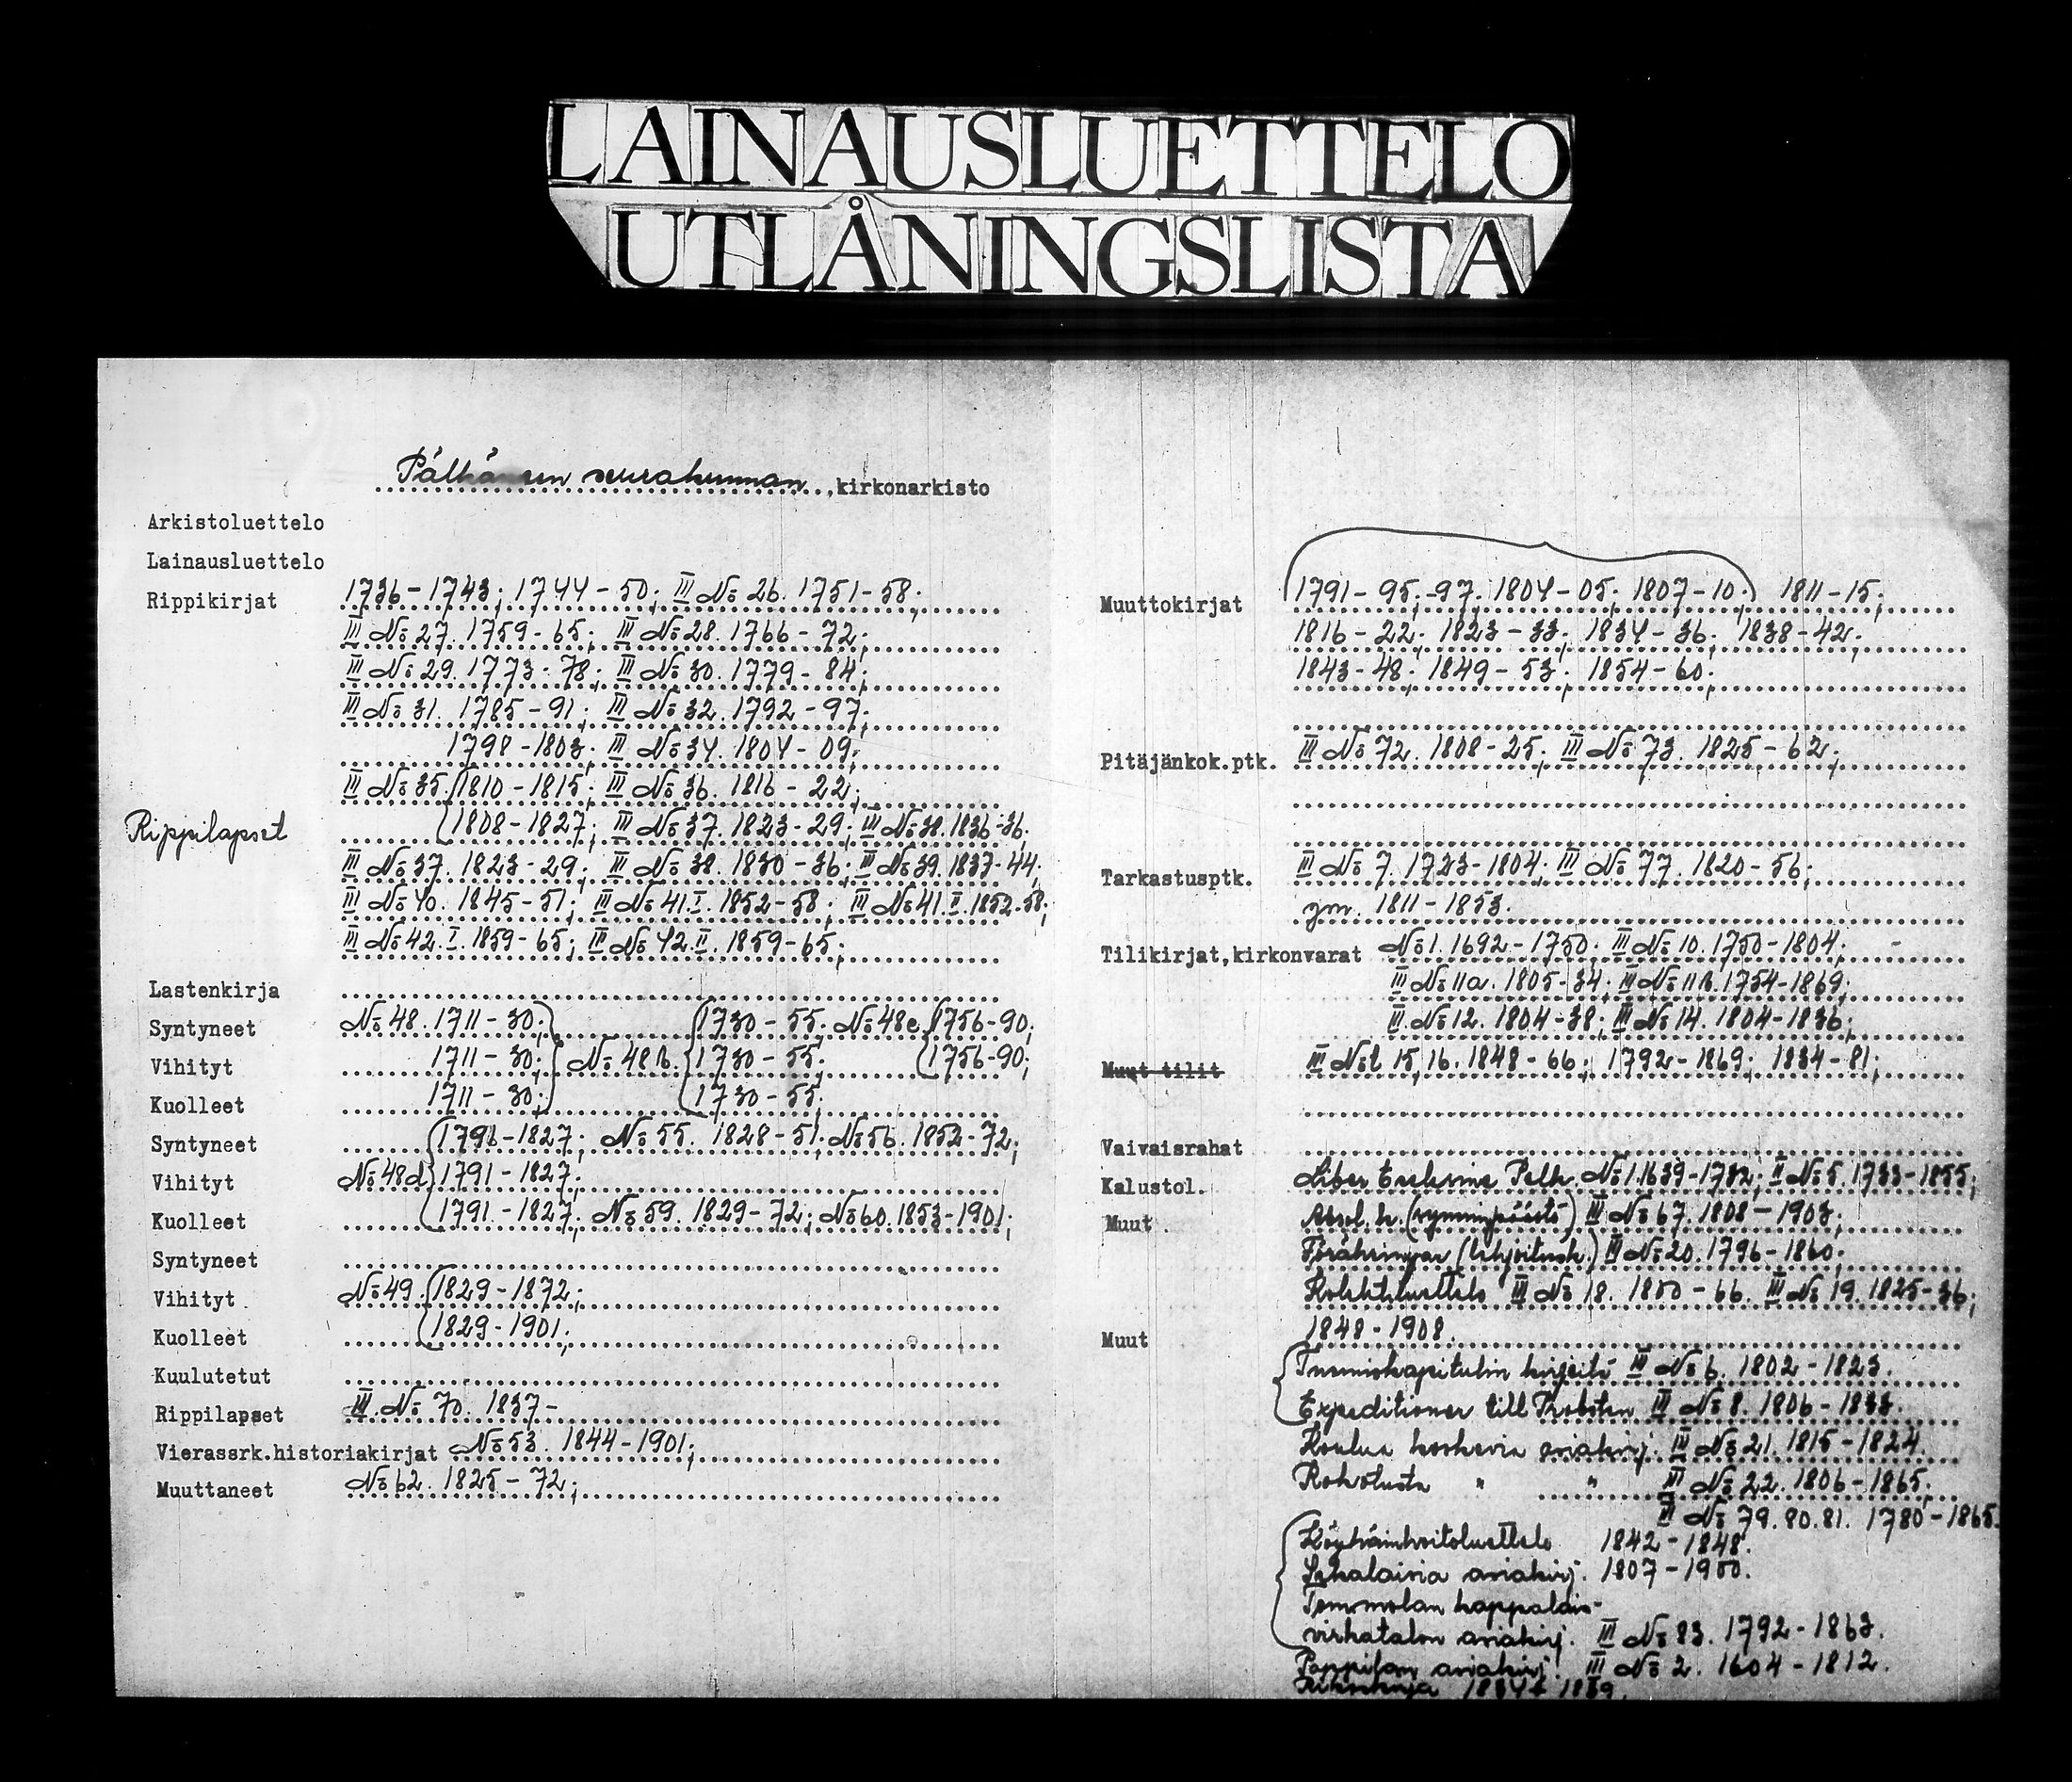 LAINAUSLUETTELO
UTLÅNINGSLISTA
Pälkäneen seurakunnan, kirkonarkisto
Arkistoluettelo
Lainausluettelo
Rippikirjat 1736-1743; 1744-50; III No 26. 1751-58;
III No 27. 1759-65; III No 28. 1766-72;
III No 29. 1773-78; III No 30. 1779-84;
III No 31. 1785-91; III No 32. 1792-97;
1798-1803; III No 34. 1804-09;
III No 35. 1810-1815; III No 36. 1816-22;
Rippilapset 1808-1827; III No 37. 1823-29; III No 38. 1836-36.
III No 37. 1823-29; III No 38. 1830-36; III No 39. 1837-44;
III No 40. 1845-51; III No 41.I. 1852-58; III No 41.II. 1852-58;
III No 42.I. 1859-65; III No 42.II. 1859-65;
Lastenkirja
Syntyneet No 48. 1711-30; 1730-55; No 48c 1756-90;
Vihityt 1711-30; No 48b. 1730-55; 1756-90;
Kuolleet 1711-30; 1730-55;
Syntyneet 1796-1827; No 55. 1828-51; No 56. 1852-72;
Vihityt No 48d 1791-1827;
Kuolleet 1791-1827; No 59. 1829-72; No 60. 1853-1901;
Syntyneet
Vihityt No 49. 1829-1872;
Kuolleet 1829-1901;
Kuulutetut
Rippilapset III. No 70. 1837-
Vierassrk.historiakirjat No 53. 1844-1901;
Muuttaneet No 62. 1825-72;
Muuttokirjat 1791-95; -97; 1804-05; 1807-10; 1811-15;
1816-22; 1823-33; 1834-36; 1838-42;
1843-48; 1849-53; 1854-60;
Pitäjänkok.ptk. III No 72. 1808-25; III No 73. 1825-62;
Tarkastusptk. III No 7. 1723-1804; III No 77. 1820-56;
ym. 1811-1853.
Tilikirjat,kirkonvarat No 1. 1692-1750; III No 10. 1750-1804;
III No 11a. 1805-34; III No 11b. 1754-1869;
III No 12. 1804-38; III No 14. 1804-1836;
Muut tilit III No 15, 16. 1848-66; 1792-1869; 1834-81;
Vaivaisrahat
Kalustol. Liber Ecclesiae Pelk. No 1. 1639-1732; II No 5. 1733-1855;
Muut Absol. k. (synninpäästö) III No 67. 1808-1903;
Föräringar (lahjoitusk.) III No 20. 1796-1860;
Kolehtiluettelo III No 18. 1800-66. III No 19. 1825-36;
Muut 1848-1908.
Tuomiokapitulin kirjeitä III No 6. 1802-1823.
Expeditioner till Probsten III No 8. 1806-1833.
Koulua koskevia asiakirj. III No 21. 1815-1824.
Rokotusta " " III No 22. 1806-1865;
III No 79. 80. 81. 1780-1865.
Köyhäinhoitoluettelo 1842-1848.
Sekalaisia asiakirj. 1807-1900.
Tommolan kappalais-
virkatalon asiakirj. III No 83. 1792-1863.
Pappilan asiakirj. III No 2. 1604-1812.